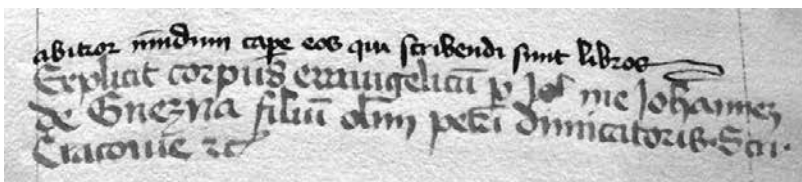 abitror mūdum cape eos qui scribendi sunt libros
Explicit corpus ewangelicū p me Iohannem
de Gnezna filiū olim petri
Cracovie zc